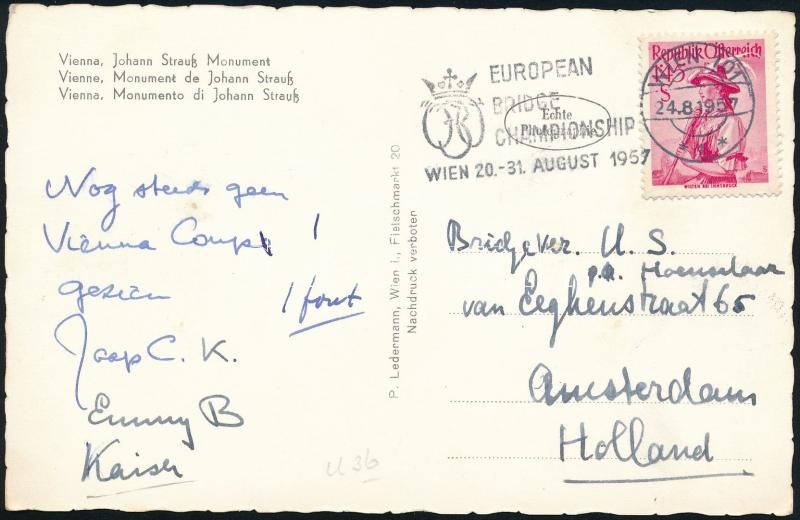 Vienna, Johann Strauß Monument
Vienne, Monument de Johann Strauß
Vienna, Monumento di Johann Strauß
Nog steeds geen
Vienna Coupe !
gezien
1 fout
Jaap C. K.
Emmy B
Kaiser
U 36
P. Ledermann, Wien I., Fleischmarkt 20
Nachdruck verboten
EUROPEAN
BRIDGE
CHAMPIONSHIP
WIEN 20.-31. AUGUST 1957
Echte
Photographie
Republik Österreich
S
WIEN 101
24.8.1957
WILTEN BEI INNSBRUCK
Bridgever. U.S.
p.a. Hoenselaar
van Eeghenstraat 65
Amsterdam
Holland